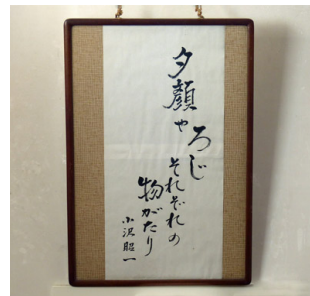 夕顔や
ろじ
それぞれの
物がたり
小沢昭一